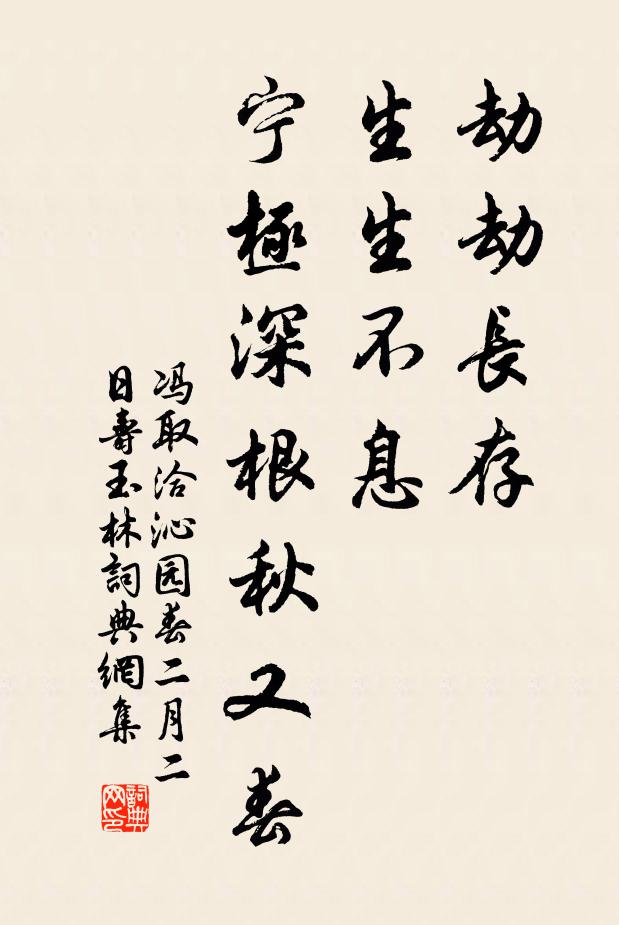 劫劫長存
生生不息
宁極深根秋又春
冯取洽沁园春二月二
日壽玉林詞典網集
詞典网印